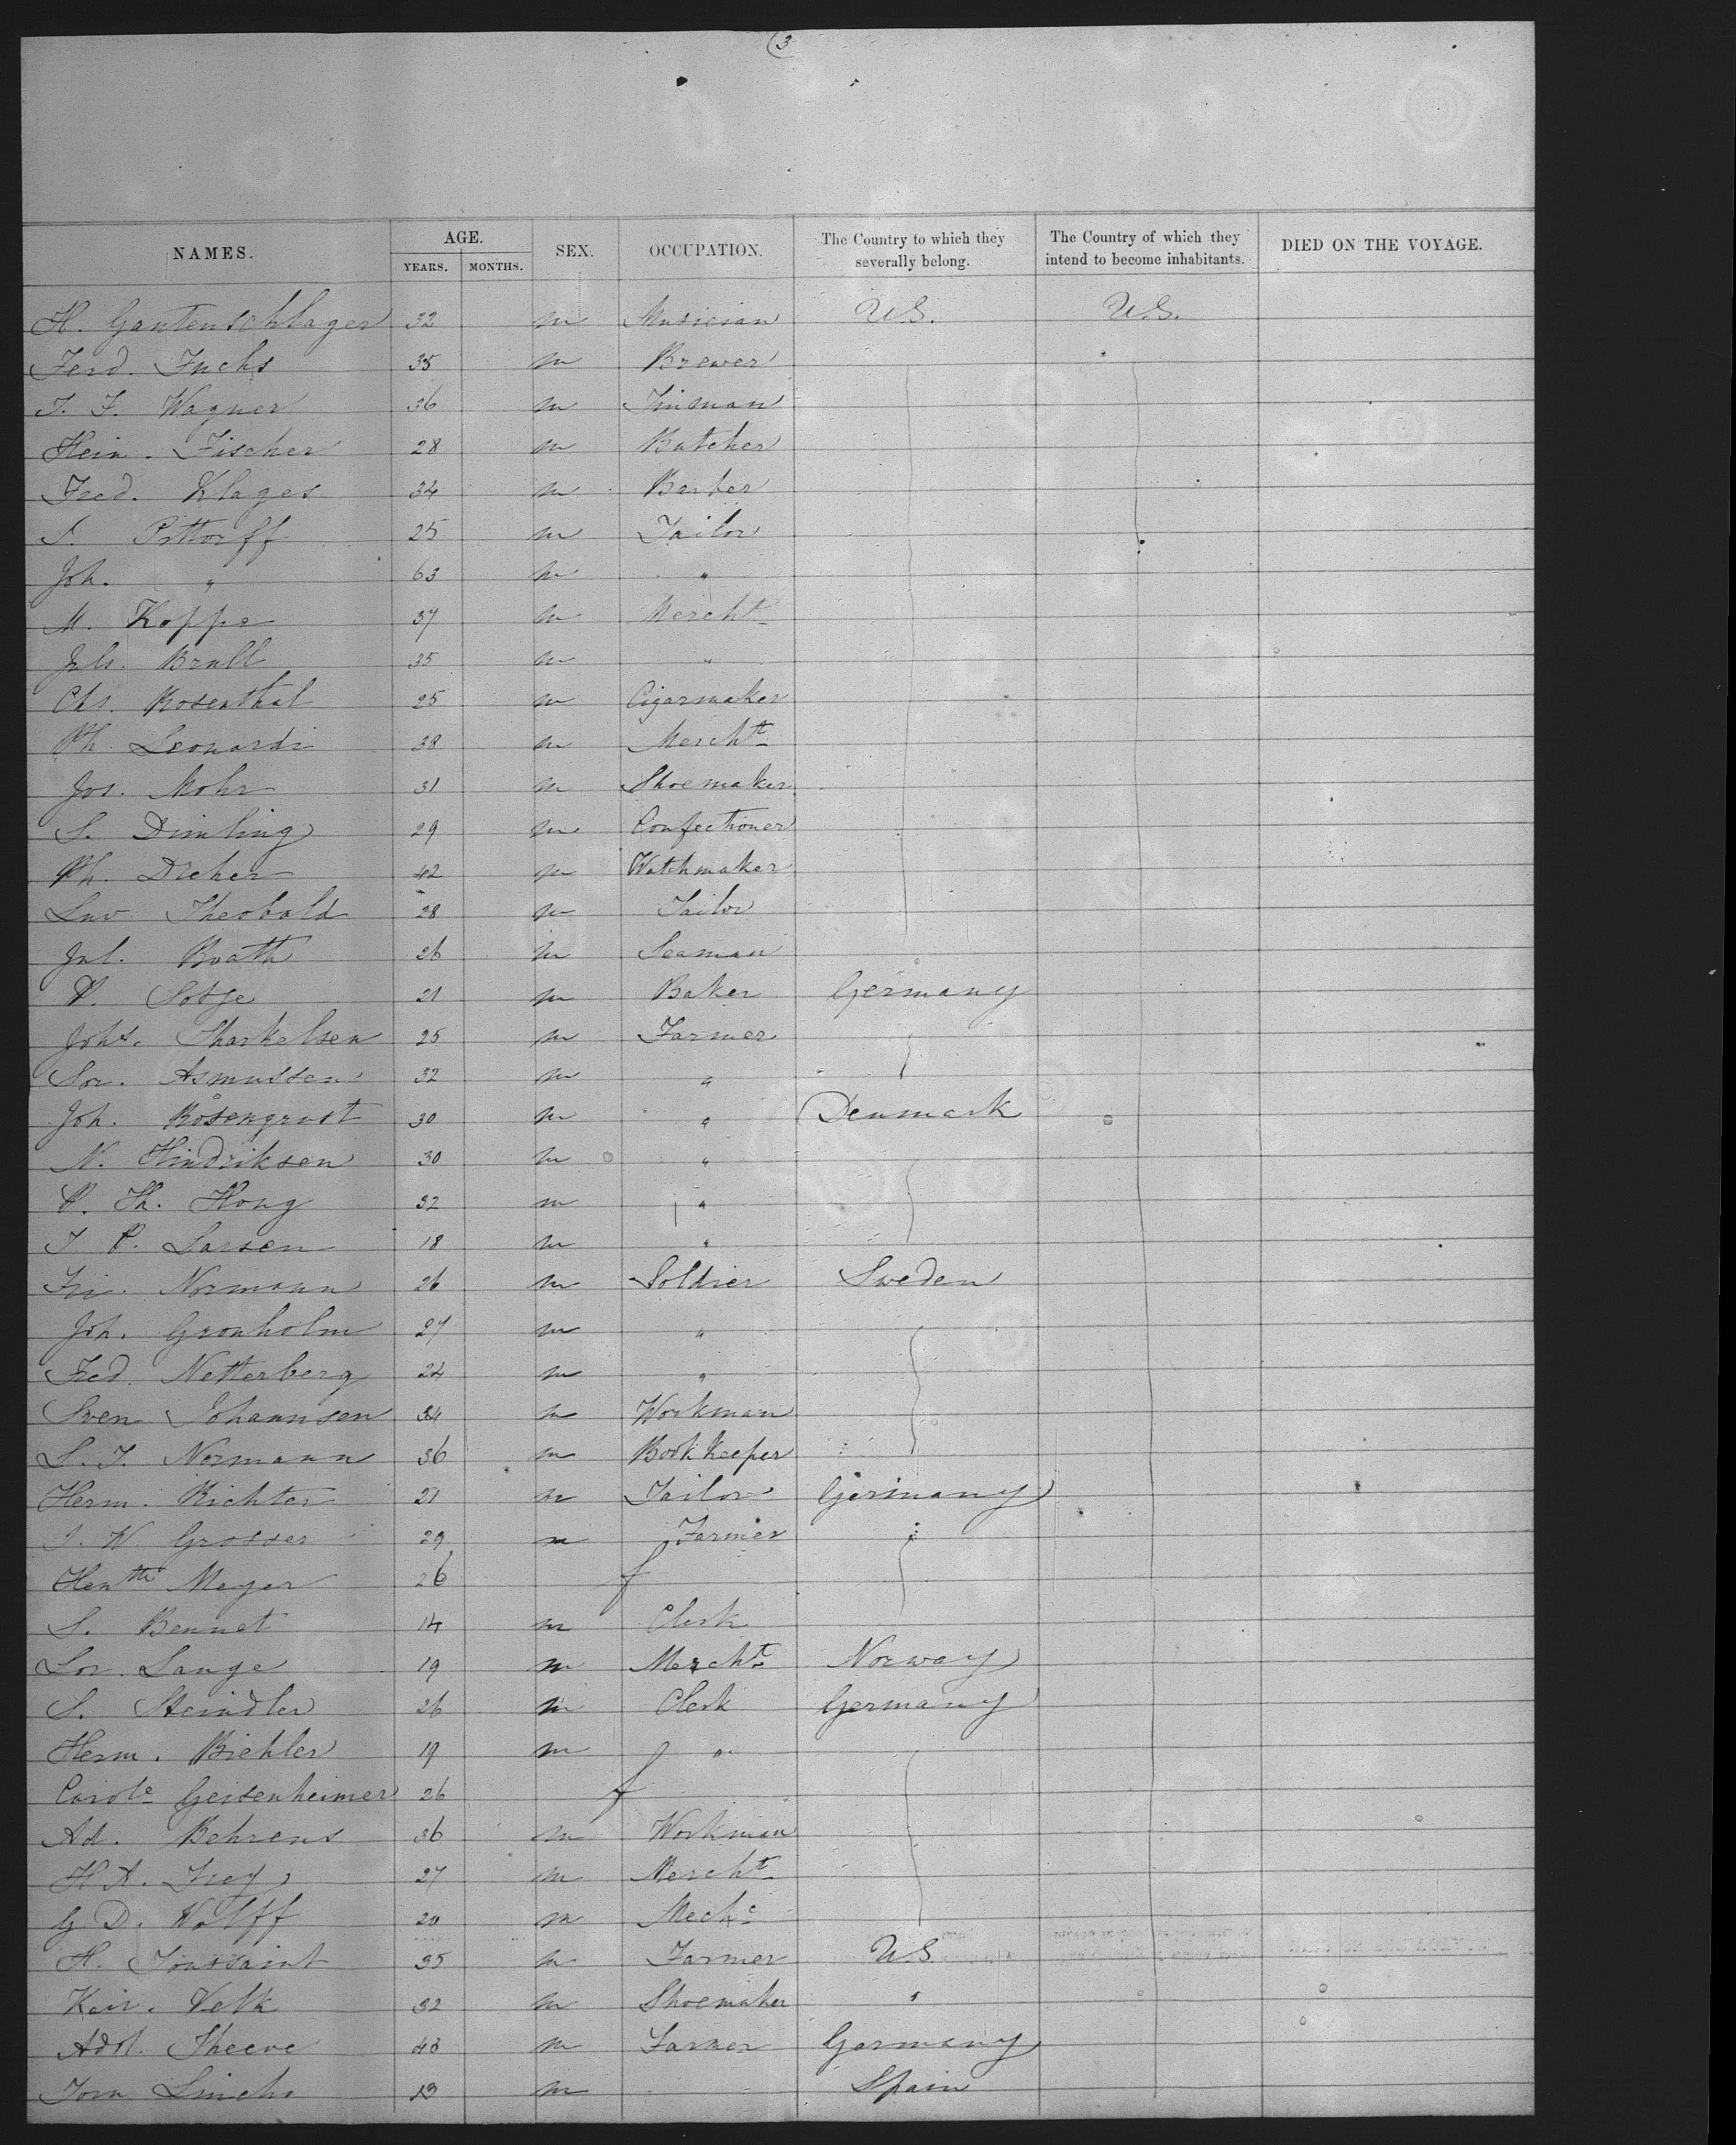 (3
NAMES. AGE. YEARS. MONTHS. SEX. OCCUPATION. The Country to which they severally belong. The Country of which they intend to become inhabitants. DIED ON THE VOYAGE.
H. Gantenschlager 32 m Musician U.S. U.S.
Ferd. Fuchs 35 m Brewer
J. F. Wagner 36 m Tinman
Hein. Fischer 28 m Butcher
Fred. Klages 34 m Barber
Pittorff 25 m Tailor
Joh. " 63 m "
M. Koppe 37 m Mercht
Juls. Brull 35 m "
Chs. Rosenthal 25 m Cigarmaker
Ph. Leonardi 38 m Mercht
Jos. Mohr 31 m Shoemaker
S. Dimling 29 m Confectioner
Ph. Dreher 42 m Watchmaker
Theobald 28 m Tailor
Jul. Boath 26 m Seaman
P. Sotje 21 m Baker Germany
Johs. Tharkelsen 25 m Farmer
Sor. Asmussen 32 m "
Joh. Rosengvist 30 m " Denmark
N. Hindriksen 30 m "
P. Th. Houg 32 m "
J P. Larsen 18 m "
Normann 26 m Soldier Sweden
Joh. Gronholm 27 m "
Fred. Netterberg 22 m "
Sven Johannsen 34 m Workman
S. J. Normann 36 m Bookkeeper
Herm. Richter 21 m Tailor Germany
J. W. Grosser 29 m Farmer
Hentte Meyer 26 f
S. Bennet 14 m Clerk
Lor. Lange 19 m Mercht Norway
S. Steindler 26 m Clerk Germany
Herm. Biehler 19 m "
Carole Geisenheimer 26 f
Ad. Behrens 36 m Workman
H A. Frey 27 m Mercht
G D. Wolff 20 m Mechc
H. Toussaint 35 m Farmer U.S.
Velk 32 m Shoemaker "
Adol. Theeve 43 m Farmer Germany
13 m Spain